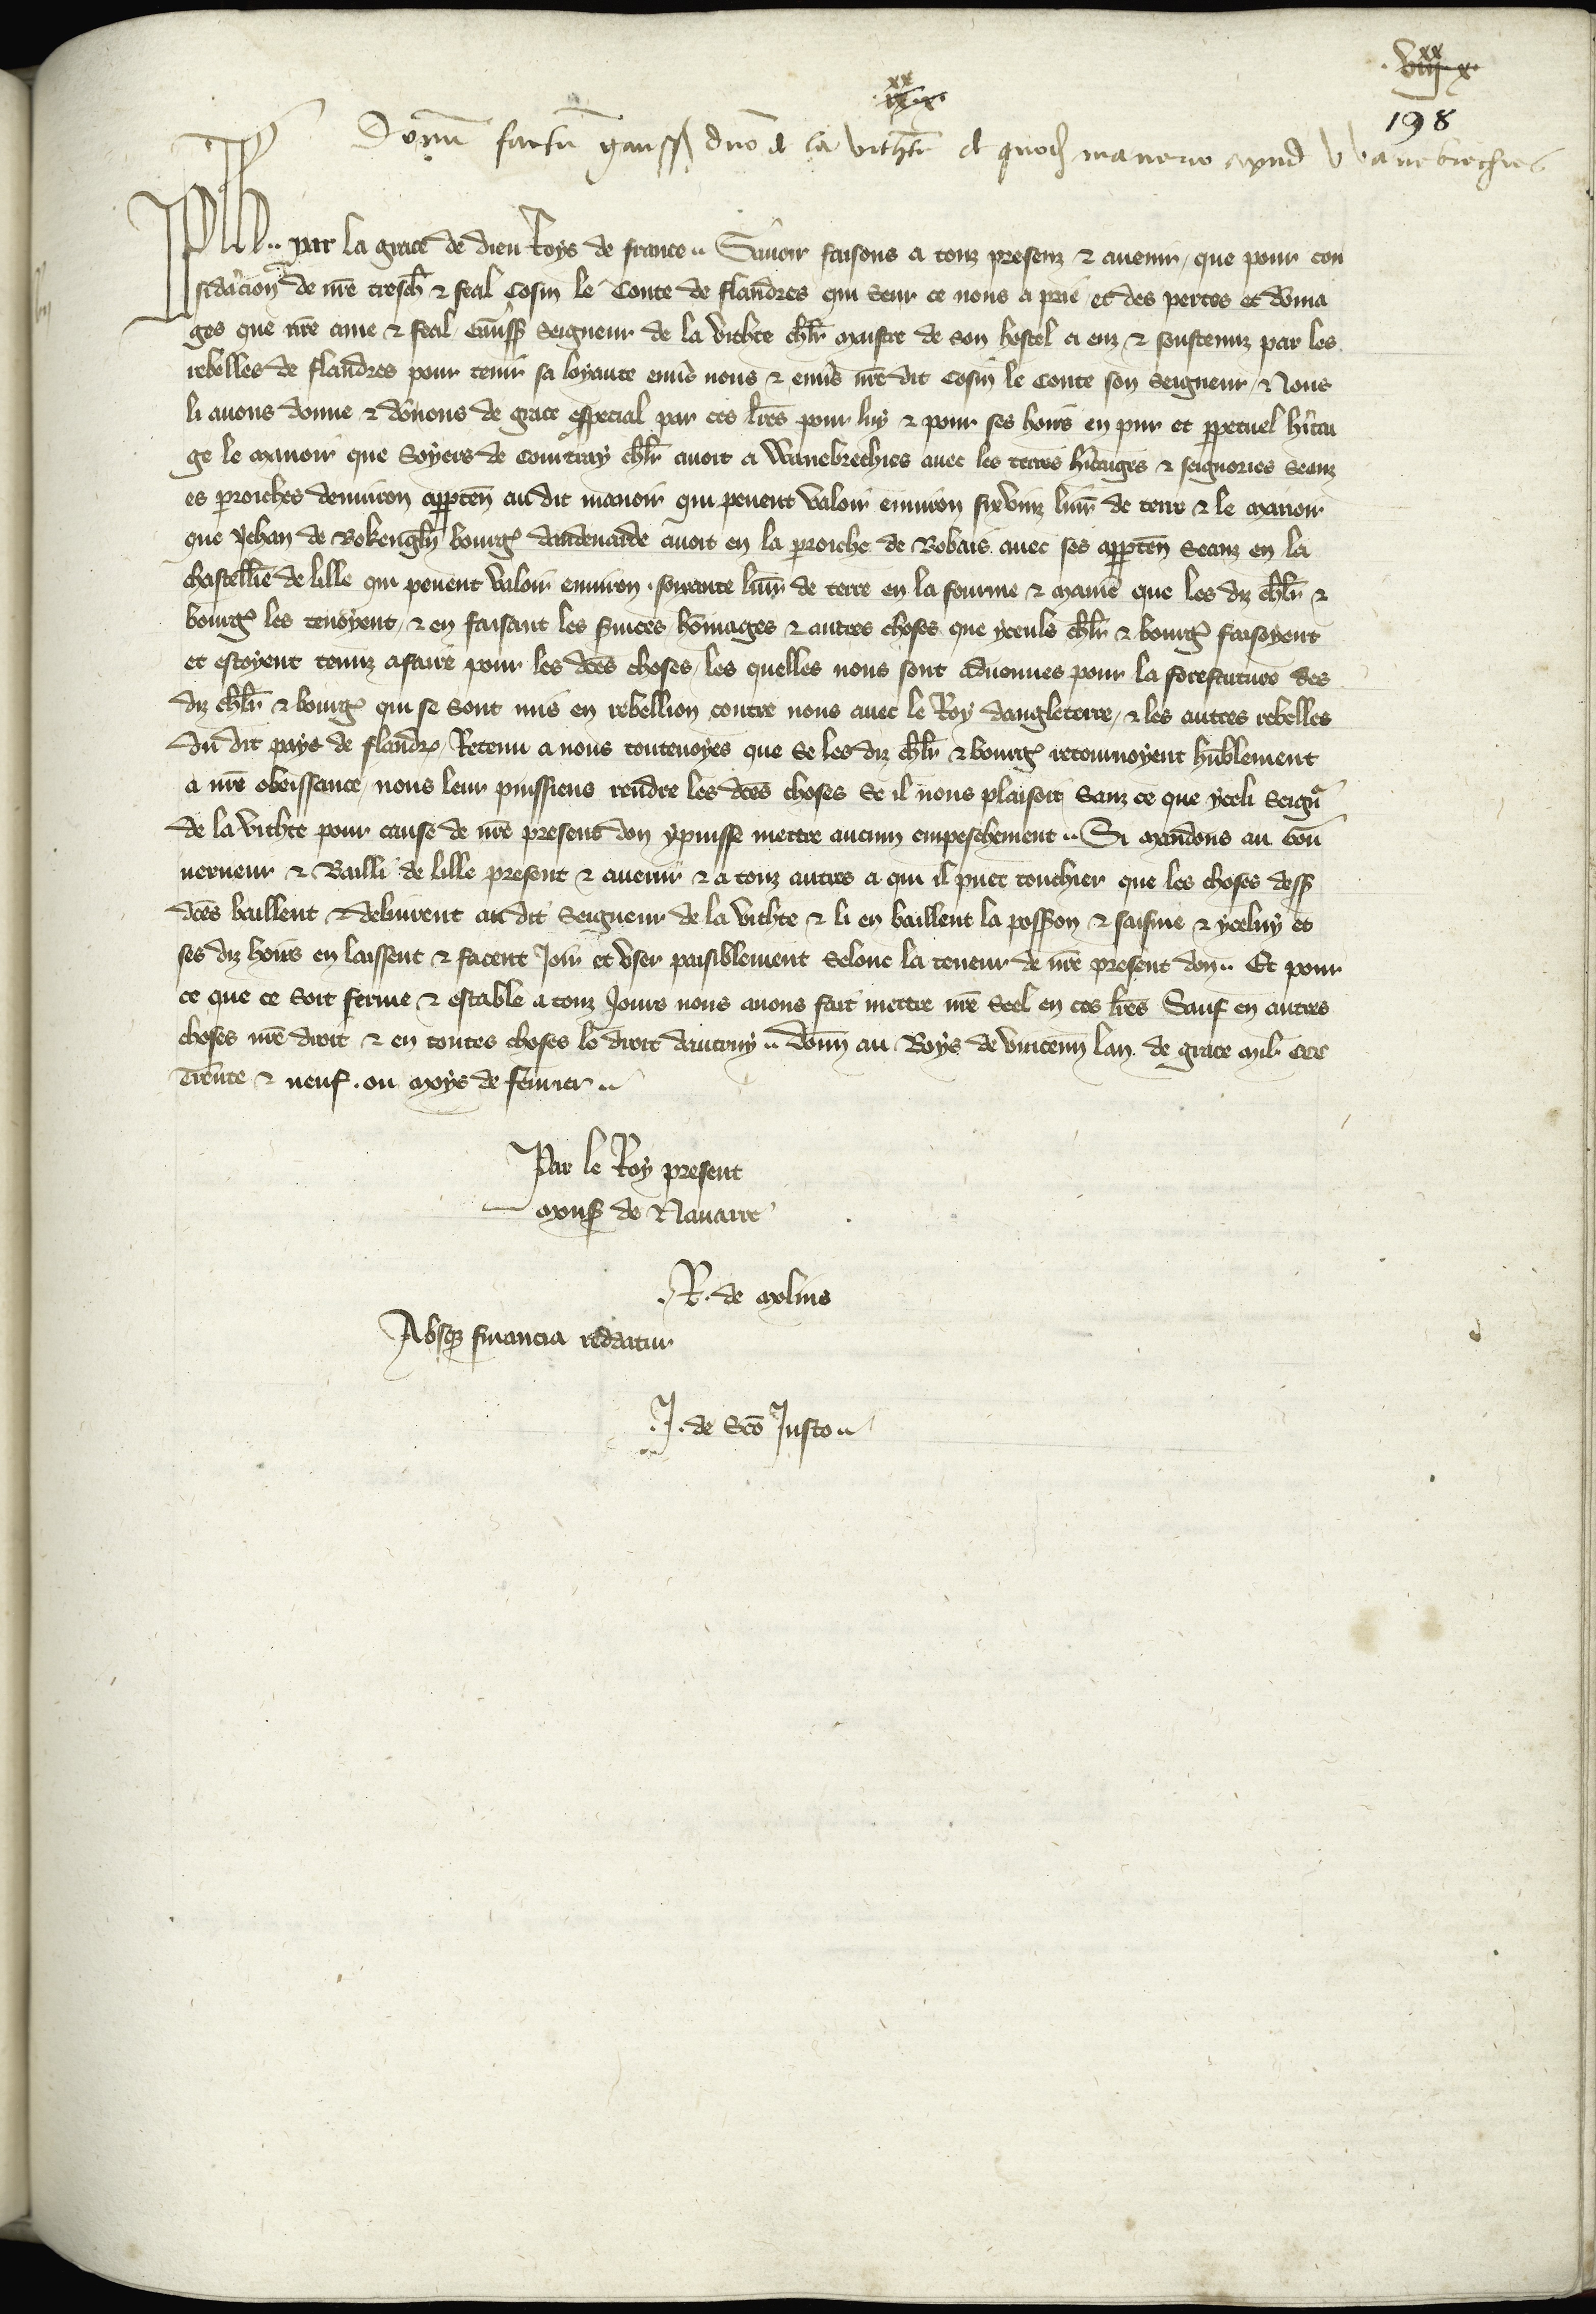 .viijxx x.
ixxx x.
198
Donũ factũ gauss̃ dño de la vichte de quod̃ manerio apud Wanebrechies
Ph̃.. par la grace de dieu Roys de france.. Sauoir faisons a touz presenz & auenir, que pour con
sidãcion de nr̃e tresch̃ & feal Cosin le Conte de flandres qui seur ce nous a prie et des pertes et doma
ges que nr̃e ame & feal Seigneur de la vichte chlr̃ maistre de son hostel a euz & soustenuz par les
rebelles de flandres pour tenir sa loyaute enũs nous & enũs nr̃e dit Cosin le Conte son Seigneur, Nous
li auons donne & dõnons de grace especial par ces lr̃es pour luy & pour ses hoirs en pur et ppetuel hr̃ita
ge le manoir que Soyers de courtray chlr̃ auoit a Wanebrechies auec les terres hr̃itages & seignories Seanz
es proiches denuiron apptẽn au dit manoir qui peuent valoir enuiron sixvinz liur̃ de terre & le manoir
que Jehan de bourg̃ daudenarde auoit en la proiche de Robais auec ses apptẽn Seanz en la
chastellr̃ie de lille qui peuent valoir enuiron soixante liur̃ de terre en la fourme & manie que les diz chlr̃ &
bourg̃ les tenoyent, & en faisant les suices hõmages & autres choses que yceuls chlr̃ & bourg̃ faisoyent
et estoyent tenuz a faire pour les dc̃es choses, les quelles nous sont aduenues pour la forefaiture des
diz chlr̃ & bourg̃ qui se sont mis en rebellion contre nous auec le Roy dangleterre, & les autres rebelles
du dit pays de flandr̃, Retenu a nous toutenoyes que se les diz chlr̃ & bourg̃ retournoyent hũblement
a nr̃e obeissance, nous leur puissiens rendre les dc̃es choses se il nous plaisoit, sanz ce que yceli seigñ
de la vichte pour cause de nr̃e present don y puisse mettre aucun empeschement.. Si mandons au gou
uerneur & Bailli de lille present & auenir & a touz autres a qui il puet touchier que les choses dess̃
dc̃es baillent & deliurent au dit Seigneur de la vichte & li en baillent la poss̃on & saisine & yceluy et
ses diz hoirs en laissent & facent Joir et vser paisiblement selonc la teneur de nr̃e present don.. Et pour
ce que ce soit ferme & estable a touz Jours nous auons fait mettre nr̃e Seel en ces lr̃es Sauf en autres
choses nr̃e droit & en toutes choses le droit dautruy.. donñ au Boys de vincenñ lan de grace mil ccc
trente & neuf. ou moys de feurier..
Par le Roy present
mons̃ de Nauarre
.R. de molins
Absq3 financia reddatur
.J. de Sc̃o Justo..